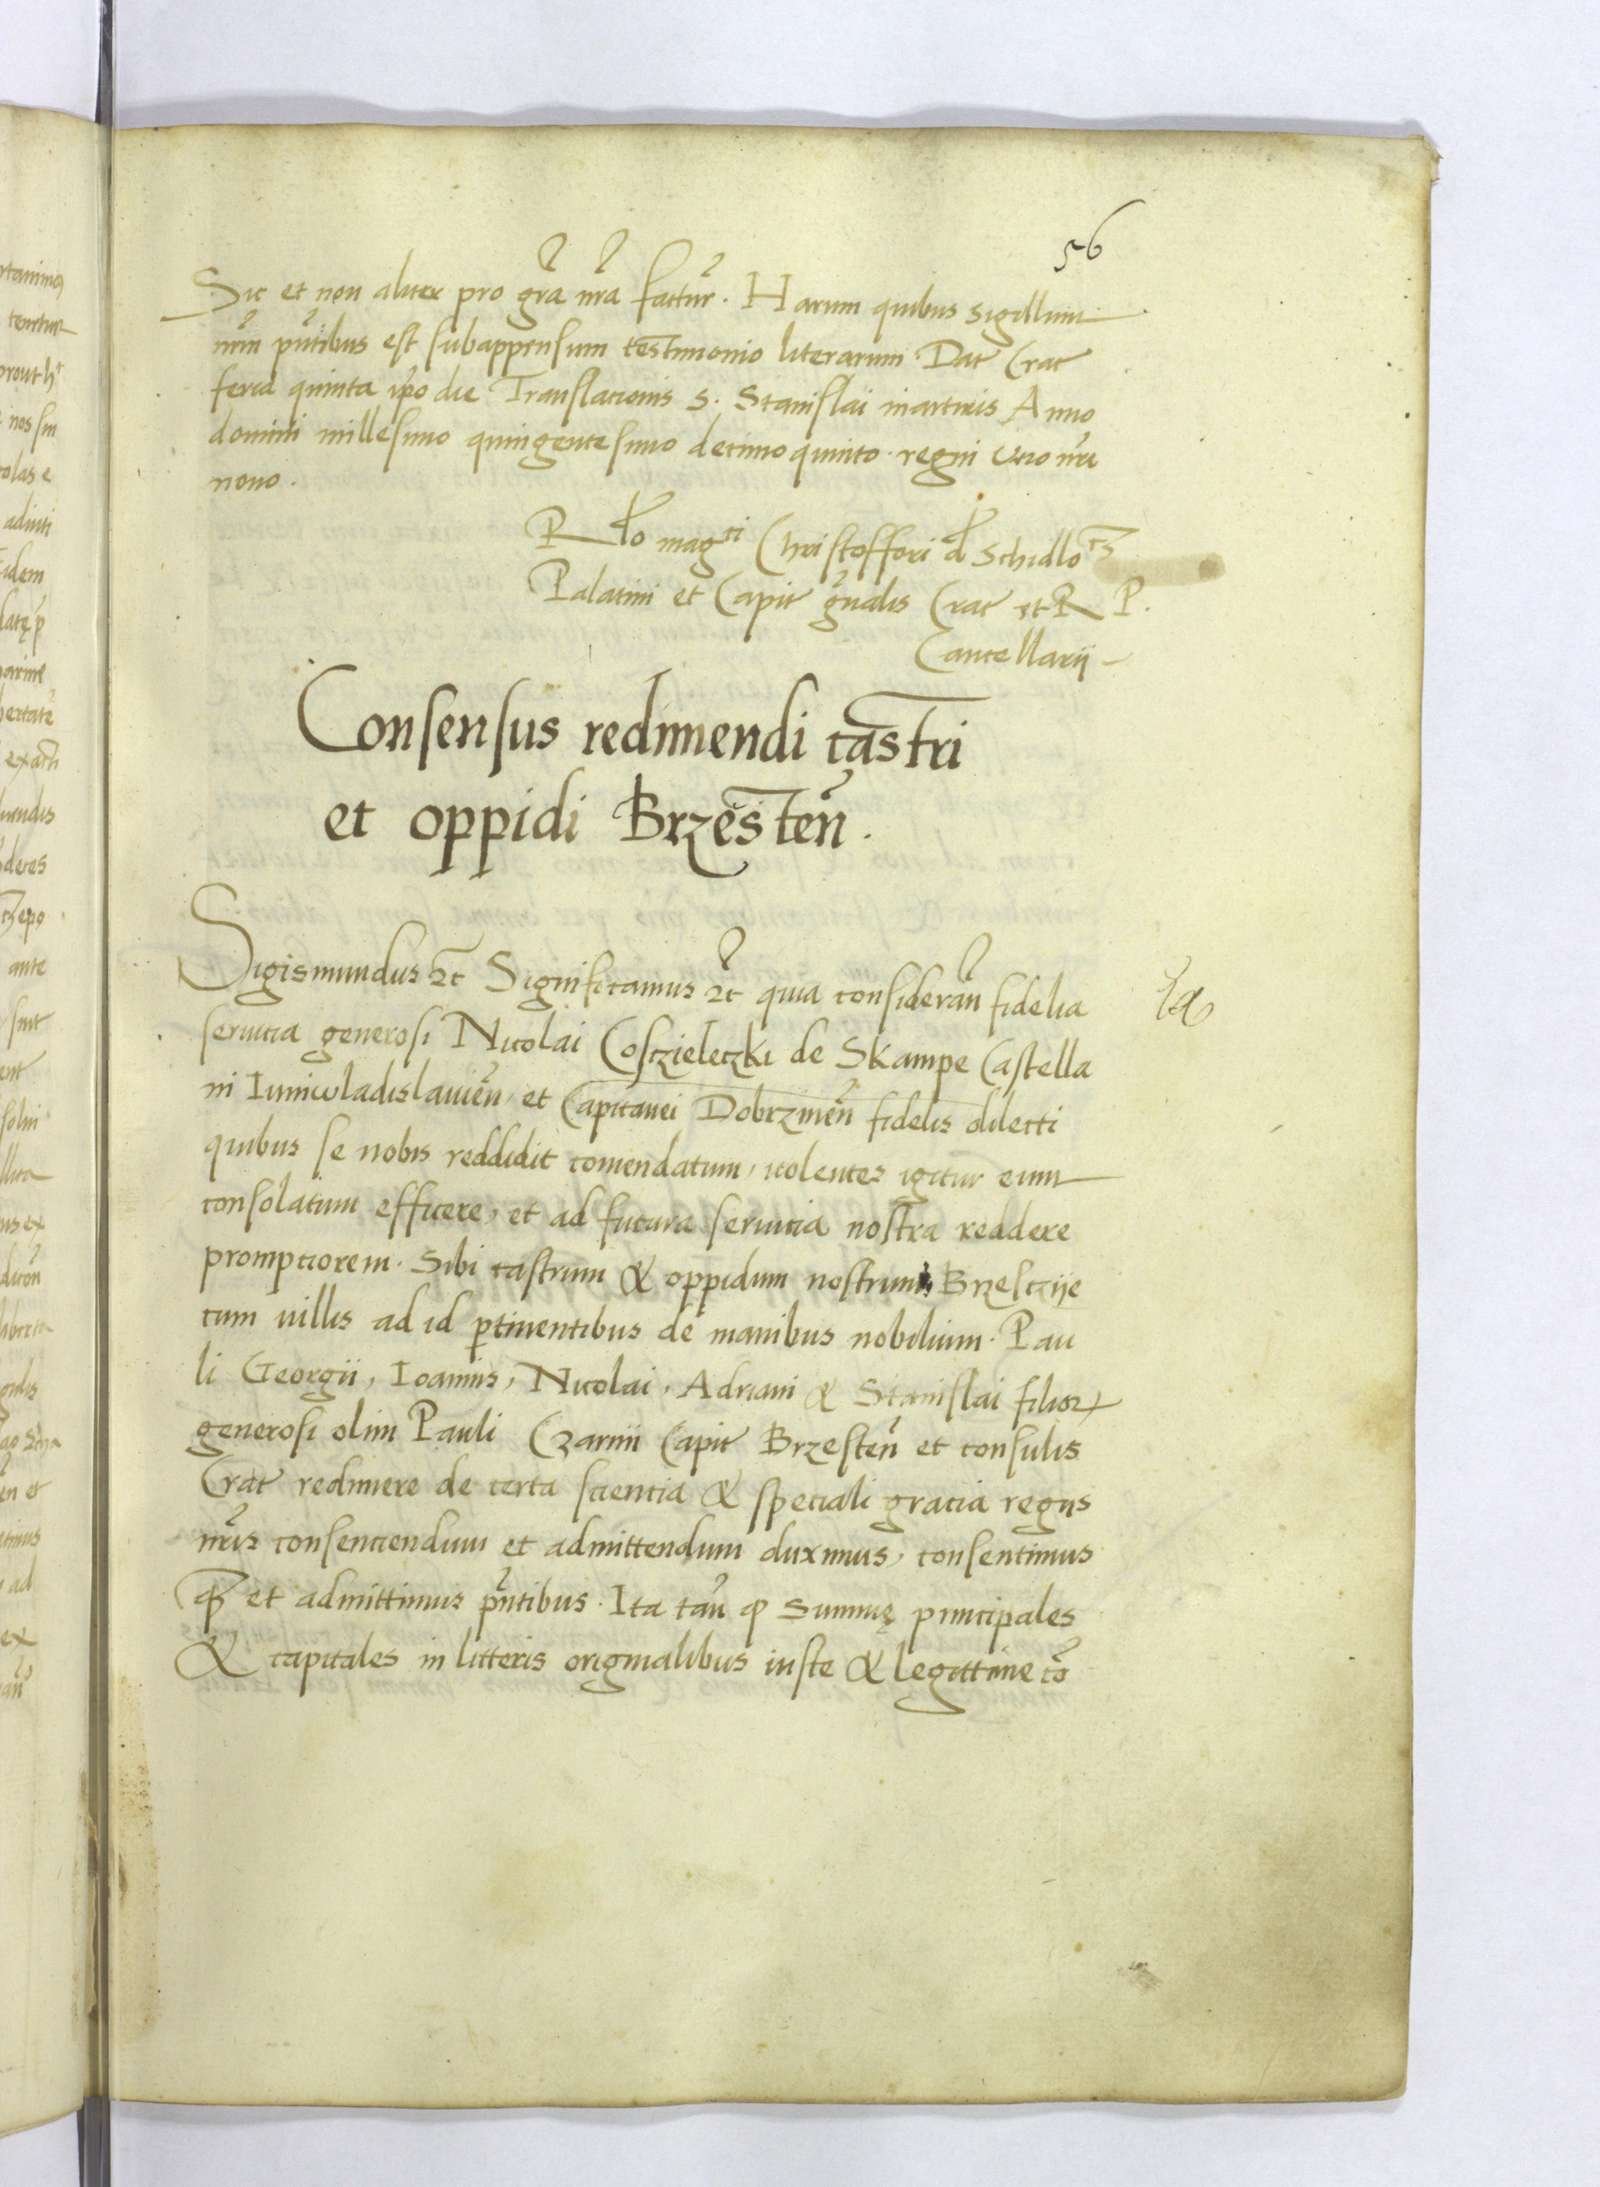 56
Sic et non aliter pro gr̃a nr̃a factur̃. Harum quibus sigillum
nr̃m pñtibus est subappensum testimonio literarum. Dat Crac
feria quinta ip̃o die Translacionis S. Stanislai martiris Anno
domini millesimo quingentesimo decimo quinto. regni vero nr̃i
nono.
Rl̃o magci Christoffori de Schidlo
Palatini et Capit gñalis Crac et R P.
Cancellarij
Consensus redimendi castri
et oppidi Brzesteñ.
Sigismundus etc̃ Significamus etc̃ quia considerañ fidelia
seruicia generosi Nicolai Cosczieleczki de Skampe Castella
ni Iuniwladislauień, et Capitanei Dobrzineñ fidelis dilecti
quibus se nobis reddidit comendatum, volentes igitur eum
consolatum efficere, et ad futura seruicia nostra reddere
prompciorem. Sibi castrum & oppidum nostrum Brzesczije
cum villis ad id ptinentibus de manibus nobilium. Pau
li Georgii, Ioannis, Nicolai, Adriani & Stanislai filior
generosi olim Pauli Czarni Capit Brzesteñ et consulis
Crac redimere de certa sciencia & speciali gracia regiis
nr̃is consenciendum et admittendum duximus, consentimus
q et admittimus pñtibus. Ita tañ q summę principales
& capitales in litteris originalibus iuste & legittime cõ